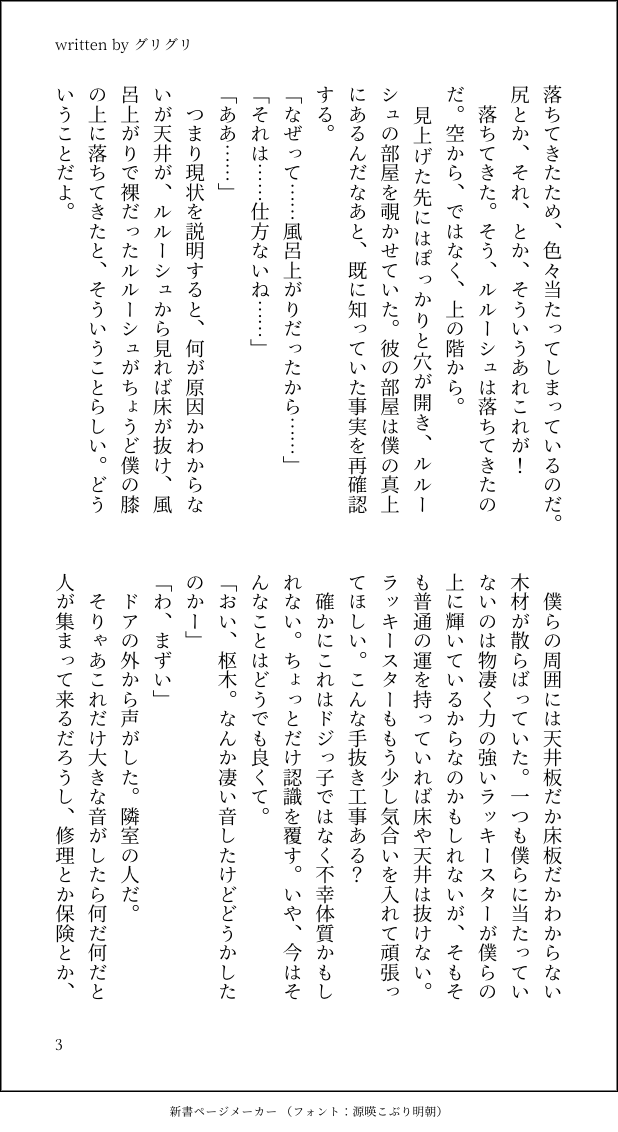 written by グリグリ
落ちてきたため、色々当たってしまっているのだ。
尻とか、それ、とか、そういうあれこれが！
　落ちてきた。そう、ルルーシュは落ちてきたの
だ。空から、ではなく、上の階から。
　見上げた先にはぽっかりと穴が開き、ルルー
シュの部屋を覗かせていた。彼の部屋は僕の真上
にあるんだなあと、既に知っていた事実を再確認
する。
「なぜって……風呂上がりだったから……」
「それは……仕方ないね……」
「ああ……」
　つまり現状を説明すると、何が原因かわからな
いが天井が、ルルーシュから見れば床が抜け、風
呂上がりで裸だったルルーシュがちょうど僕の膝
の上に落ちてきたと、そういうことらしい。どう
いうことだよ。
　僕らの周囲には天井板だか床板だかわからない
木材が散らばっていた。一つも僕らに当たってい
ないのは物凄く力の強いラッキースターが僕らの
上に輝いているからなのかもしれないが、そもそ
も普通の運を持っていれば床や天井は抜けない。
ラッキースターももう少し気合いを入れて頑張っ
てほしい。こんな手抜き工事ある？
　確かにこれはドジっ子ではなく不幸体質かもし
れない。ちょっとだけ認識を覆す。いや、今はそ
んなことはどうでも良くて。
「おい、枢木。なんか凄い音したけどどうかした
のかー」
「わ、まずい」
　ドアの外から声がした。隣室の人だ。
　そりゃあこれだけ大きな音がしたら何だ何だと
人が集まって来るだろうし、修理とか保険とか、
3
新書ページメーカー（フォント：源暎こぶり明朝）